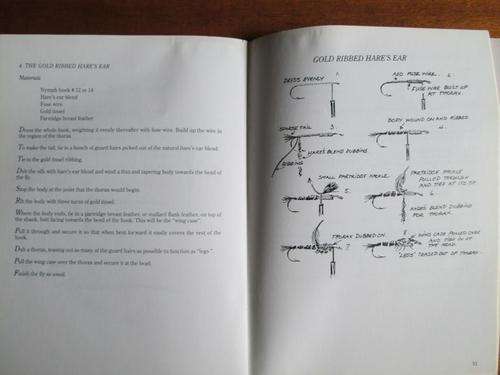 4 THE GOLD RIBBED HARE'S EAR
Materials
Nymph hook # 12 to 14
Hare's ear blend
Fuse wire
Gold tinsel
Partridge breast feather
Dress the whole hook, weighting it evenly thereafter with fuse wire. Build up the wire in
the region of the thorax.
To make the tail, tie in a bunch of guard hairs picked out of the natural hare's ear blend.
Tie in the gold tinsel ribbing.
Dub the silk with hare's ear blend and wind a thin and tapering body towards the head of
the fly.
Stop the body at the point that the thorax would begin.
Rib the body with three turns of gold tinsel.
Where the body ends, tie in a partridge breast feather, or mallard flank feather, on top of
the shank, butt facing towards the bend of the hook. This will be the "wing case".
Pull it through and secure it so that when bent forward it easily covers the rest of the
hook.
Dub a thorax, teasing out as many of the guard hairs as possible to function as "legs".
Pull the wing case over the thorax and secure it at the head.
Finish the fly as usual.
GOLD RIBBED HARE'S EAR
DRESS EVENLY 1
ADD FUSE WIRE 2
FUSE WIRE BUILT UP
AT THORAX
SPARSE TAIL 3
HARES BLEND DUBBING
RIBBING
BODY WOUND ON AND RIBBED
4
SMALL PARTRIDGE HACKLE
5
PARTRIDGE HACKLE
PULLED THROUGH
AND TIED AT ITS TIP
6
HARES BLEND DUBBING
FOR THORAX
THORAX DUBBED ON
7
8
WING CASE PULLED OVER
AND TIED IN AT
THE HEAD
"LEGS" TEASED OUT OF THORAX